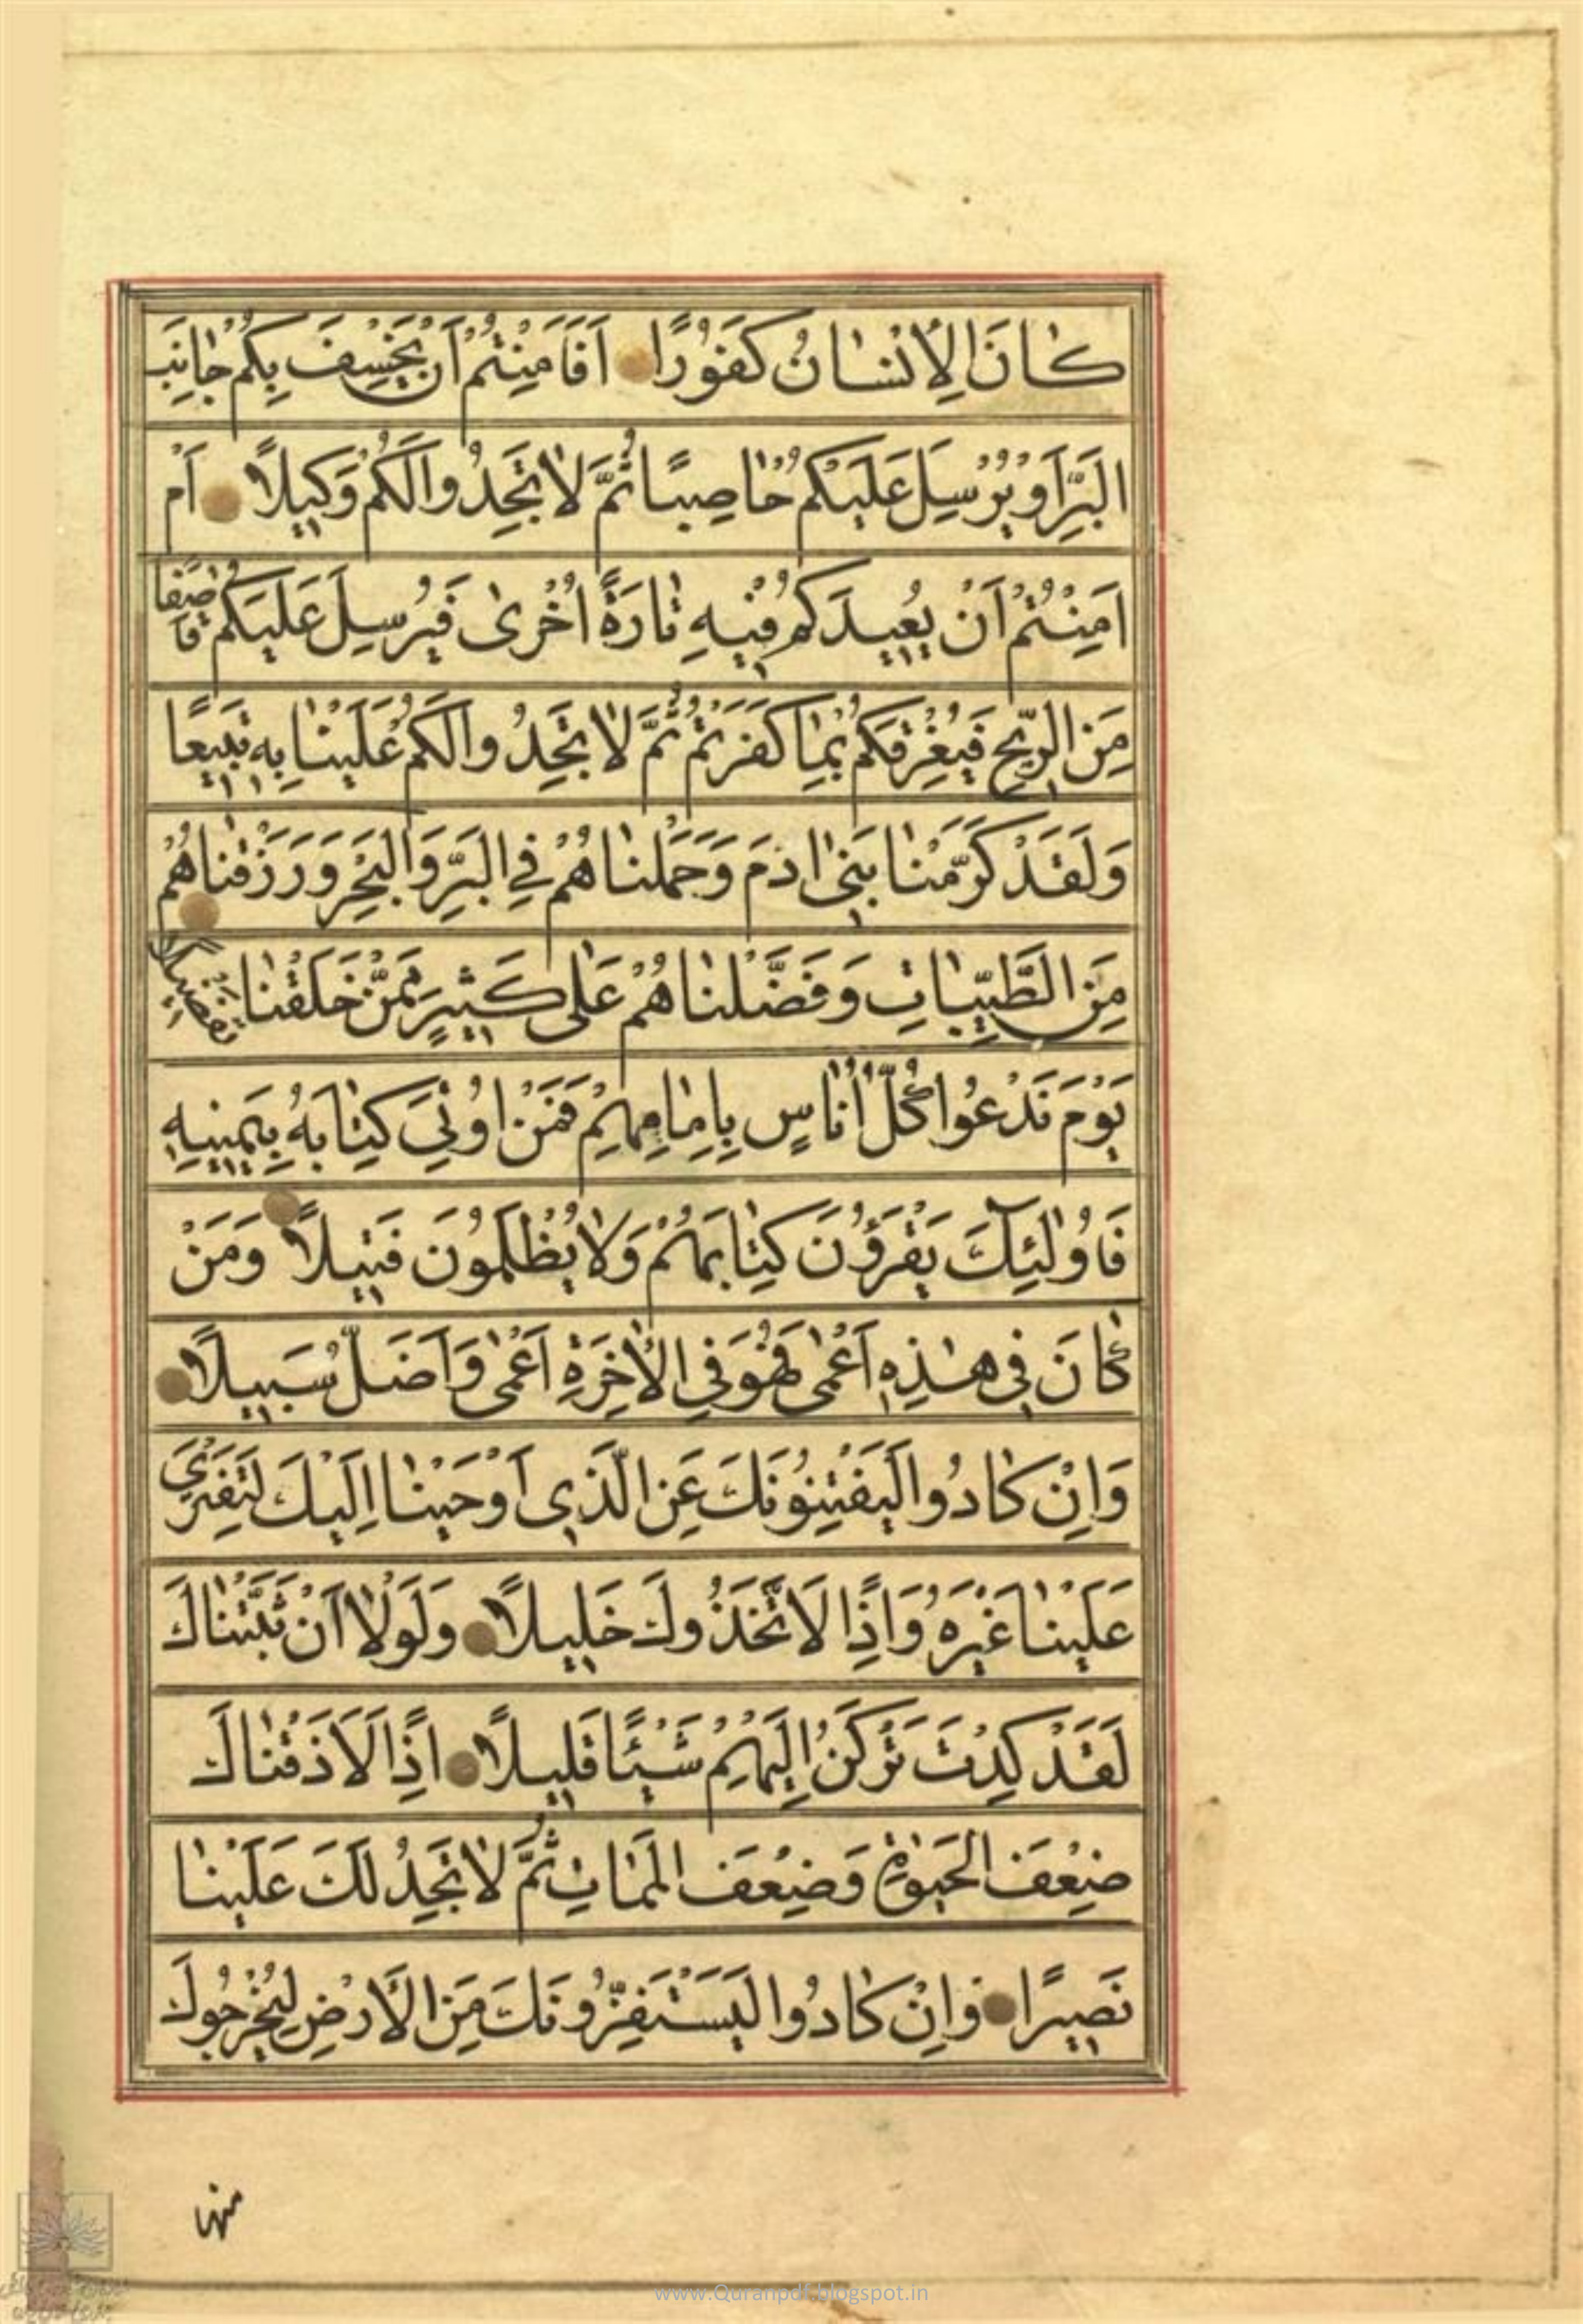 كَانَ الْاِنْسَانُ كَفُورًا اَفَاَمِنْتُمْ اَنْ يَخْسِفَ بِكُمْ جَانِبَ
الْبَرِّ اَوْ يُرْسِلَ عَلَيْكُمْ حَاصِبًا ثُمَّ لَا تَجِدُوا لَكُمْ وَكِيلًا اَمْ
اَمِنْتُمْ اَنْ يُعِيدَكُمْ فِيهِ تَارَةً اُخْرٰى فَيُرْسِلَ عَلَيْكُمْ قَاصِفًا
مِنَ الرِّيحِ فَيُغْرِقَكُمْ بِمَا كَفَرْتُمْ ثُمَّ لَا تَجِدُوا لَكُمْ عَلَيْنَا بِهِ تَبِيعًا
وَلَقَدْ كَرَّمْنَا بَنِى اٰدَمَ وَحَمَلْنَاهُمْ فِي الْبَرِّ وَالْبَحْرِ وَرَزَقْنَاهُمْ
مِنَ الطَّيِّبَاتِ وَفَضَّلْنَاهُمْ عَلٰى كَثِيرٍ مِمَّنْ خَلَقْنَا تَفْضِيلًا
يَوْمَ نَدْعُوا كُلَّ اُنَاسٍ بِاِمَامِهِمْ فَمَنْ اُوتِيَ كِتَابَهُ بِيَمِينِهِ
فَاُولٰئِكَ يَقْرَؤُنَ كِتَابَهُمْ وَلَا يُظْلَمُونَ فَتِيلًا وَمَنْ
كَانَ فِي هٰذِهِ اَعْمٰى فَهُوَ فِي الْاٰخِرَةِ اَعْمٰى وَاَضَلُّ سَبِيلًا
وَاِنْ كَادُوا لَيَفْتِنُونَكَ عَنِ الَّذِي اَوْحَيْنَا اِلَيْكَ لِتَفْتَرِيَ
عَلَيْنَا غَيْرَهُ وَاِذًا لَاتَّخَذُوكَ خَلِيلًا وَلَوْلَا اَنْ ثَبَّتْنَاكَ
لَقَدْ كِدْتَ تَرْكَنُ اِلَيْهِمْ شَيْئًا قَلِيلًا اِذًا لَاَذَقْنَاكَ
ضِعْفَ الْحَيٰوةِ وَضِعْفَ الْمَمَاتِ ثُمَّ لَا تَجِدُ لَكَ عَلَيْنَا
نَصِيرًا وَاِنْ كَادُوا لَيَسْتَفِزُّونَكَ مِنَ الْاَرْضِ لِيُخْرِجُوكَ
منها
www.Quranpdf.blogspot.in